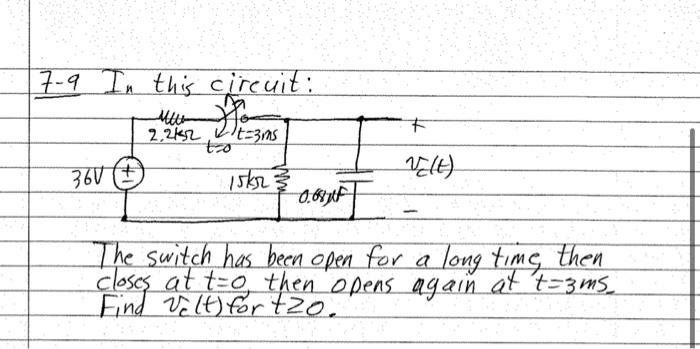 7-9 In this circuit:
2.2kΩ
t=0
t=3ms
+
36V
+
-
15kΩ
0.68μF
Vc(t)
-
The switch has been open for a long time, then
closes at t=0, then opens again at t=3ms.
Find Vc(t) for t≥0.